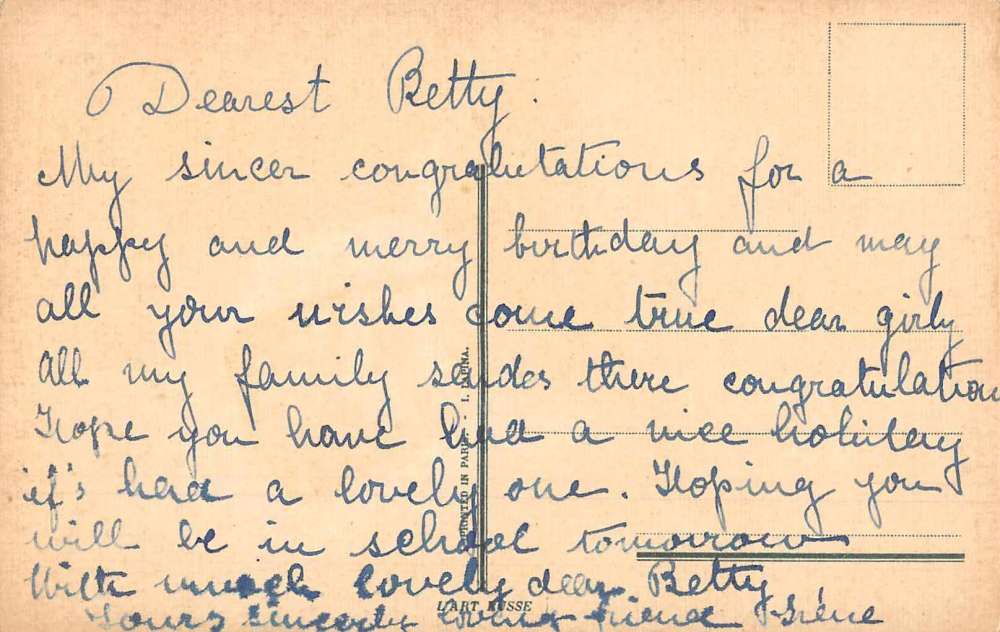 Dearest Betty.
My sincer congralutations for a
happy and merry birthday and may
all your wishes come true dear girly
All my family sendes there congratulation
Hope you have had a nice holiday
if's had a lovely one. Hoping you
will be in school tomorrow
With much lovely dear Betty
Yours sincerly loving friend Irène
PRINTED IN PARIS - I. LAPINA.
L'ART RUSSE